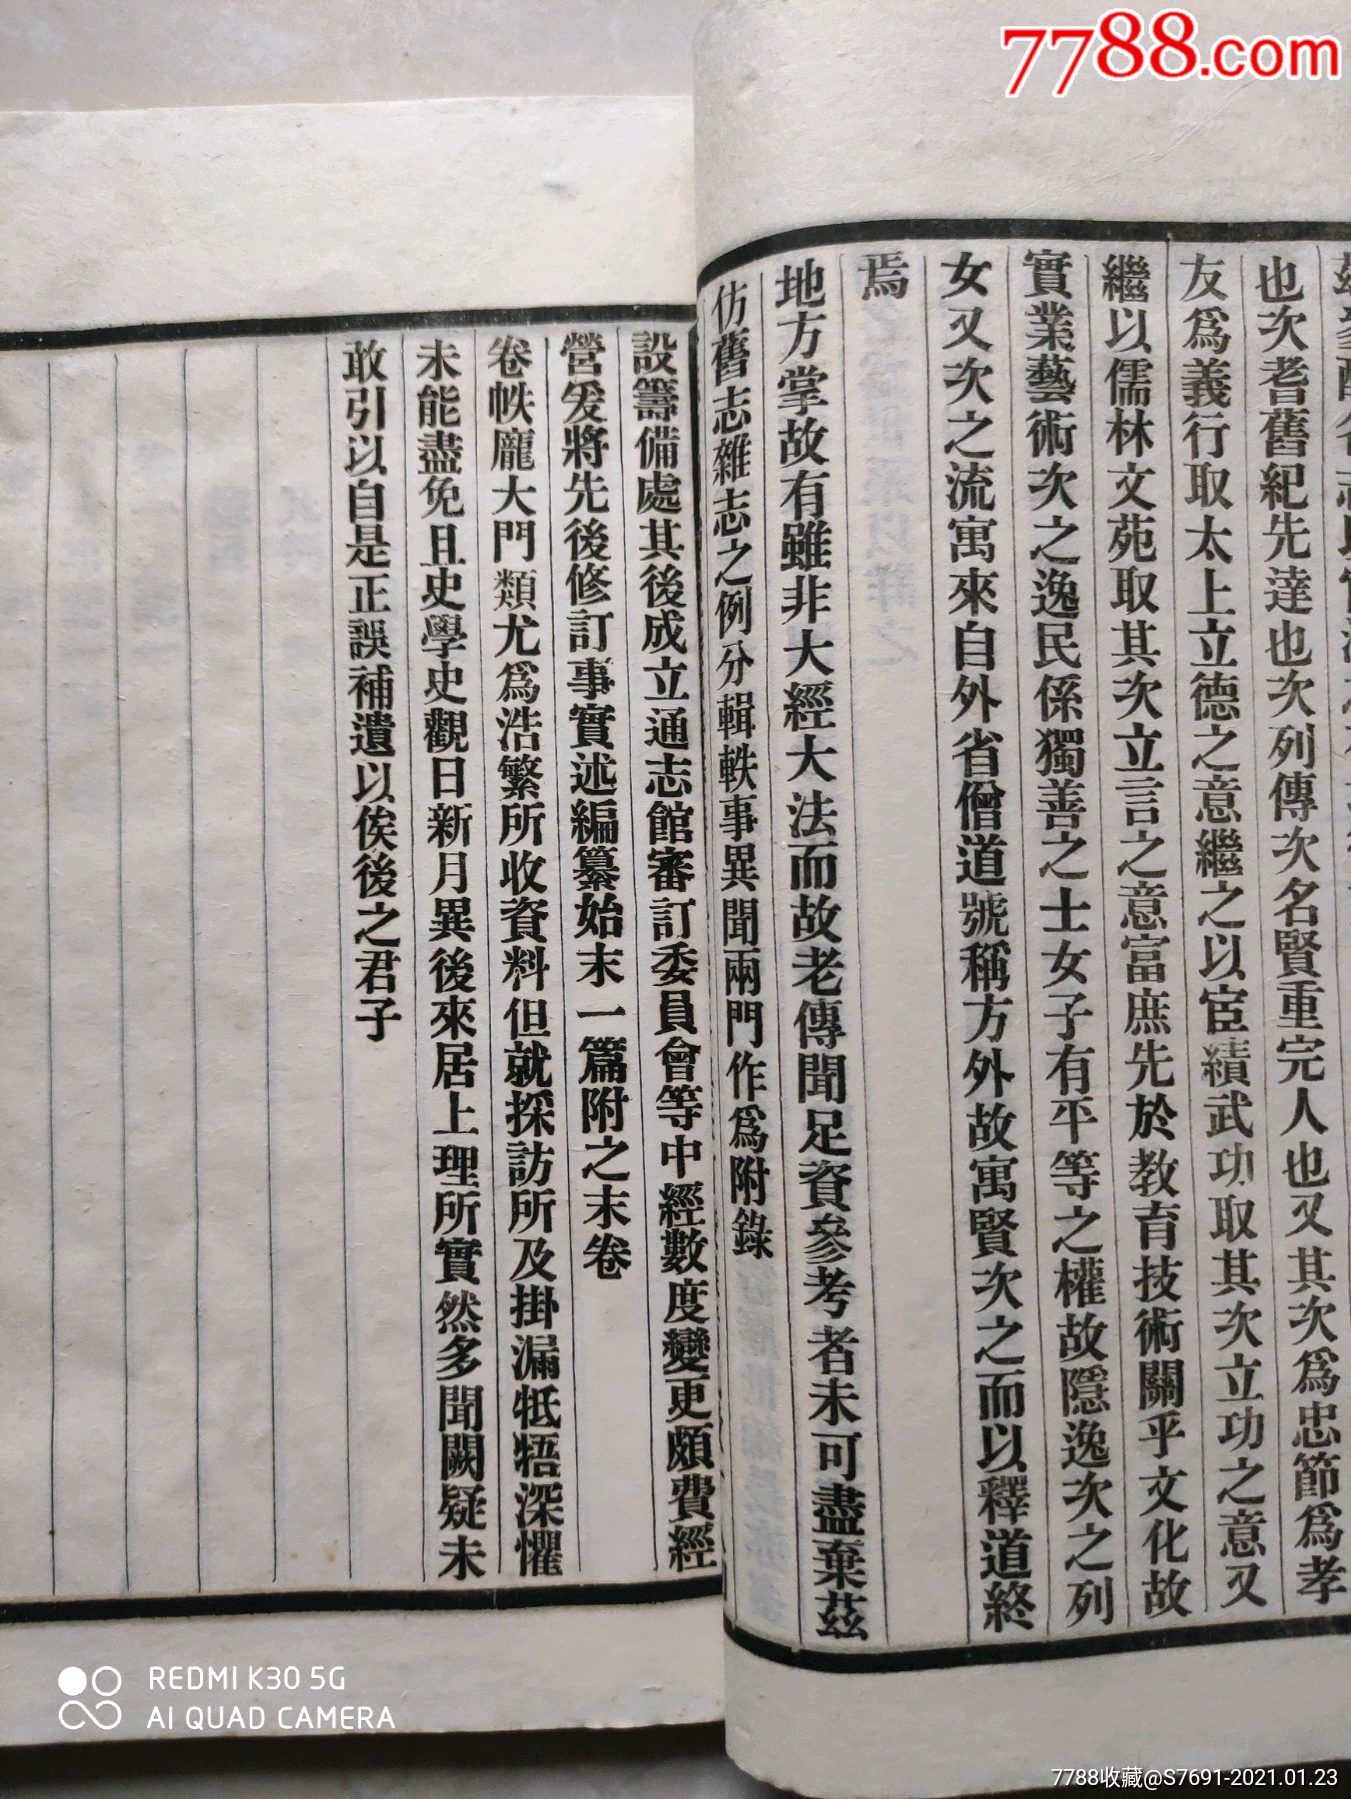 7788.com
也次耆舊紀先達也次列傳次名賢重完人也又其次爲忠節爲孝
友爲義行取太上立德之意繼之以宦績武功取其次立功之意又
繼以儒林文苑取其次立言之意富庶先於教育技術關乎文化故
實業藝術次之逸民係獨善之士女子有平等之權故隱逸次之列
女又次之流寓來自外省僧道號稱方外故寓賢次之而以釋道終
焉
地方掌故有雖非大經大法而故老傳聞足資參考者未可盡棄茲
仿舊志雜志之例分輯軼事異聞兩門作爲附錄
設籌備處其後成立通志館審訂委員會等中經數度變更頗費經
營爰將先後修訂事實述編纂始末一篇附之末卷
卷帙龐大門類尤爲浩繁所收資料但就採訪所及掛漏牴牾深懼
未能盡免且史學史觀日新月異後來居上理所實然多聞闕疑未
敢引以自是正誤補遺以俟後之君子
REDMI K30 5G
AI QUAD CAMERA
7788收藏@S7691-2021.01.23